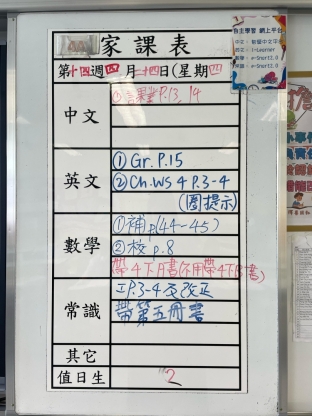 家課表
第十四週四月二十四日(星期四
自主學習 網上平台
中文
① 言果堂P.13, 14
英文
① Gr. P.15
② Ch.WS 4 P.3-4
(圈提示)
數學
① 補 p(44-45)
② 校 p.8
帶4下A書(不用帶4下B書)
常識
工P.3-4 及改正
帶第五冊書
其它
值日生
2